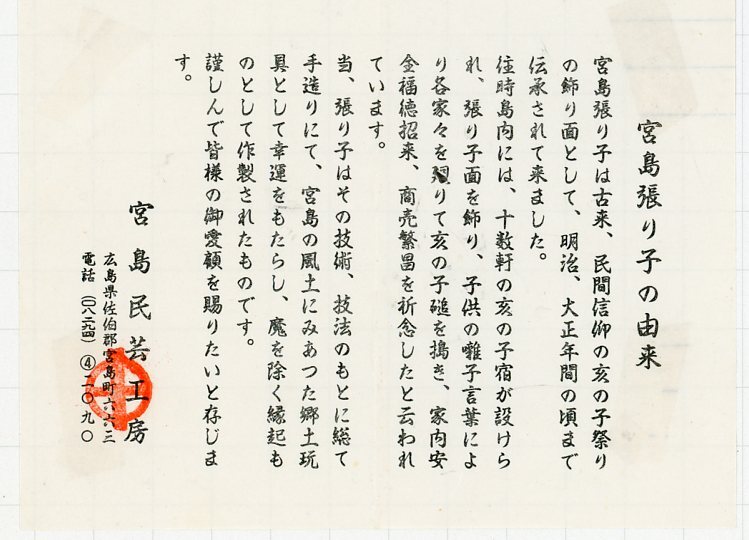 宮島張り子の由来
宮島張り子は古来、民間信仰の亥の子祭り
の飾り面として、明治、大正年間の頃まで
伝承されて来ました。
往時島内には、十数軒の亥の子宿が設けら
れ、張り子面を飾り、子供の囃子言葉によ
り各家々を廻りて亥の子磓を搗き、家内安
全福徳招来、商売繁昌を祈念したと云われ
ています。
当、張り子はその技術、技法のもとに総て
手造りにて、宮島の風土にみあつた郷土玩
具として幸運をもたらし、魔を除く縁起も
のとして作製されたものです。
謹しんで皆様の御愛顧を賜りたいと存じま
す。
宮島民芸工房
広島県佐伯郡宮島町六六三
電話(〇八二九四)④二一〇九〇